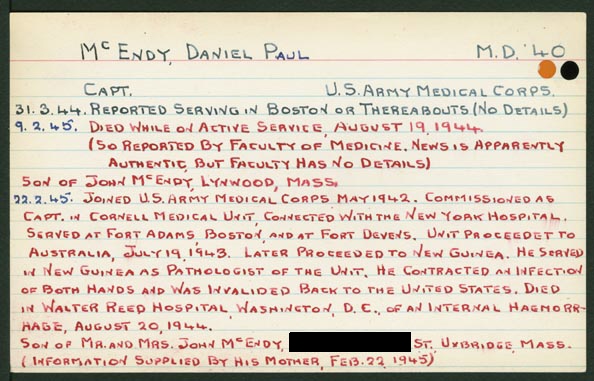 McENDY, DANIEL PAUL M.D. '40
CAPT. U.S. ARMY MEDICAL CORPS.
31.3.44. REPORTED SERVING IN BOSTON OR THEREABOUTS (NO DETAILS)
9.2.45. DIED WHILE ON ACTIVE SERVICE, AUGUST 19, 1944.
(SO REPORTED BY FACULTY OF MEDICINE. NEWS IS APPARENTLY
AUTHENTIC, BUT FACULTY HAS NO DETAILS)
SON OF JOHN McENDY, LYNWOOD, MASS.
22.2.45. JOINED U.S. ARMY MEDICAL CORPS MAY 1942. COMMISSIONED AS
CAPT. IN CORNELL MEDICAL UNIT, CONNECTED WITH THE NEW YORK HOSPITAL.
SERVED AT FORT ADAMS, BOSTON, AND AT FORT DEVENS. UNIT PROCEEDET TO
AUSTRALIA, JULY 19, 1943. LATER PROCEEDED TO NEW GUINEA. HE SERVED
IN NEW GUINEA AS PATHOLOGIST OF THE UNIT. HE CONTRACTED AN INFECTION
OF BOTH HANDS AND WAS INVALIDED BACK TO THE UNITED STATES. DIED
IN WALTER REED HOSPITAL, WASHINGTON, D.C., OF AN INTERNAL HAEMORR-
HAGE, AUGUST 20, 1944.
SON OF MR. AND MRS. JOHN McENDY, ST. UXBRIDGE, MASS.
(INFORMATION SUPPLIED BY HIS MOTHER, FEB. 22, 1945)